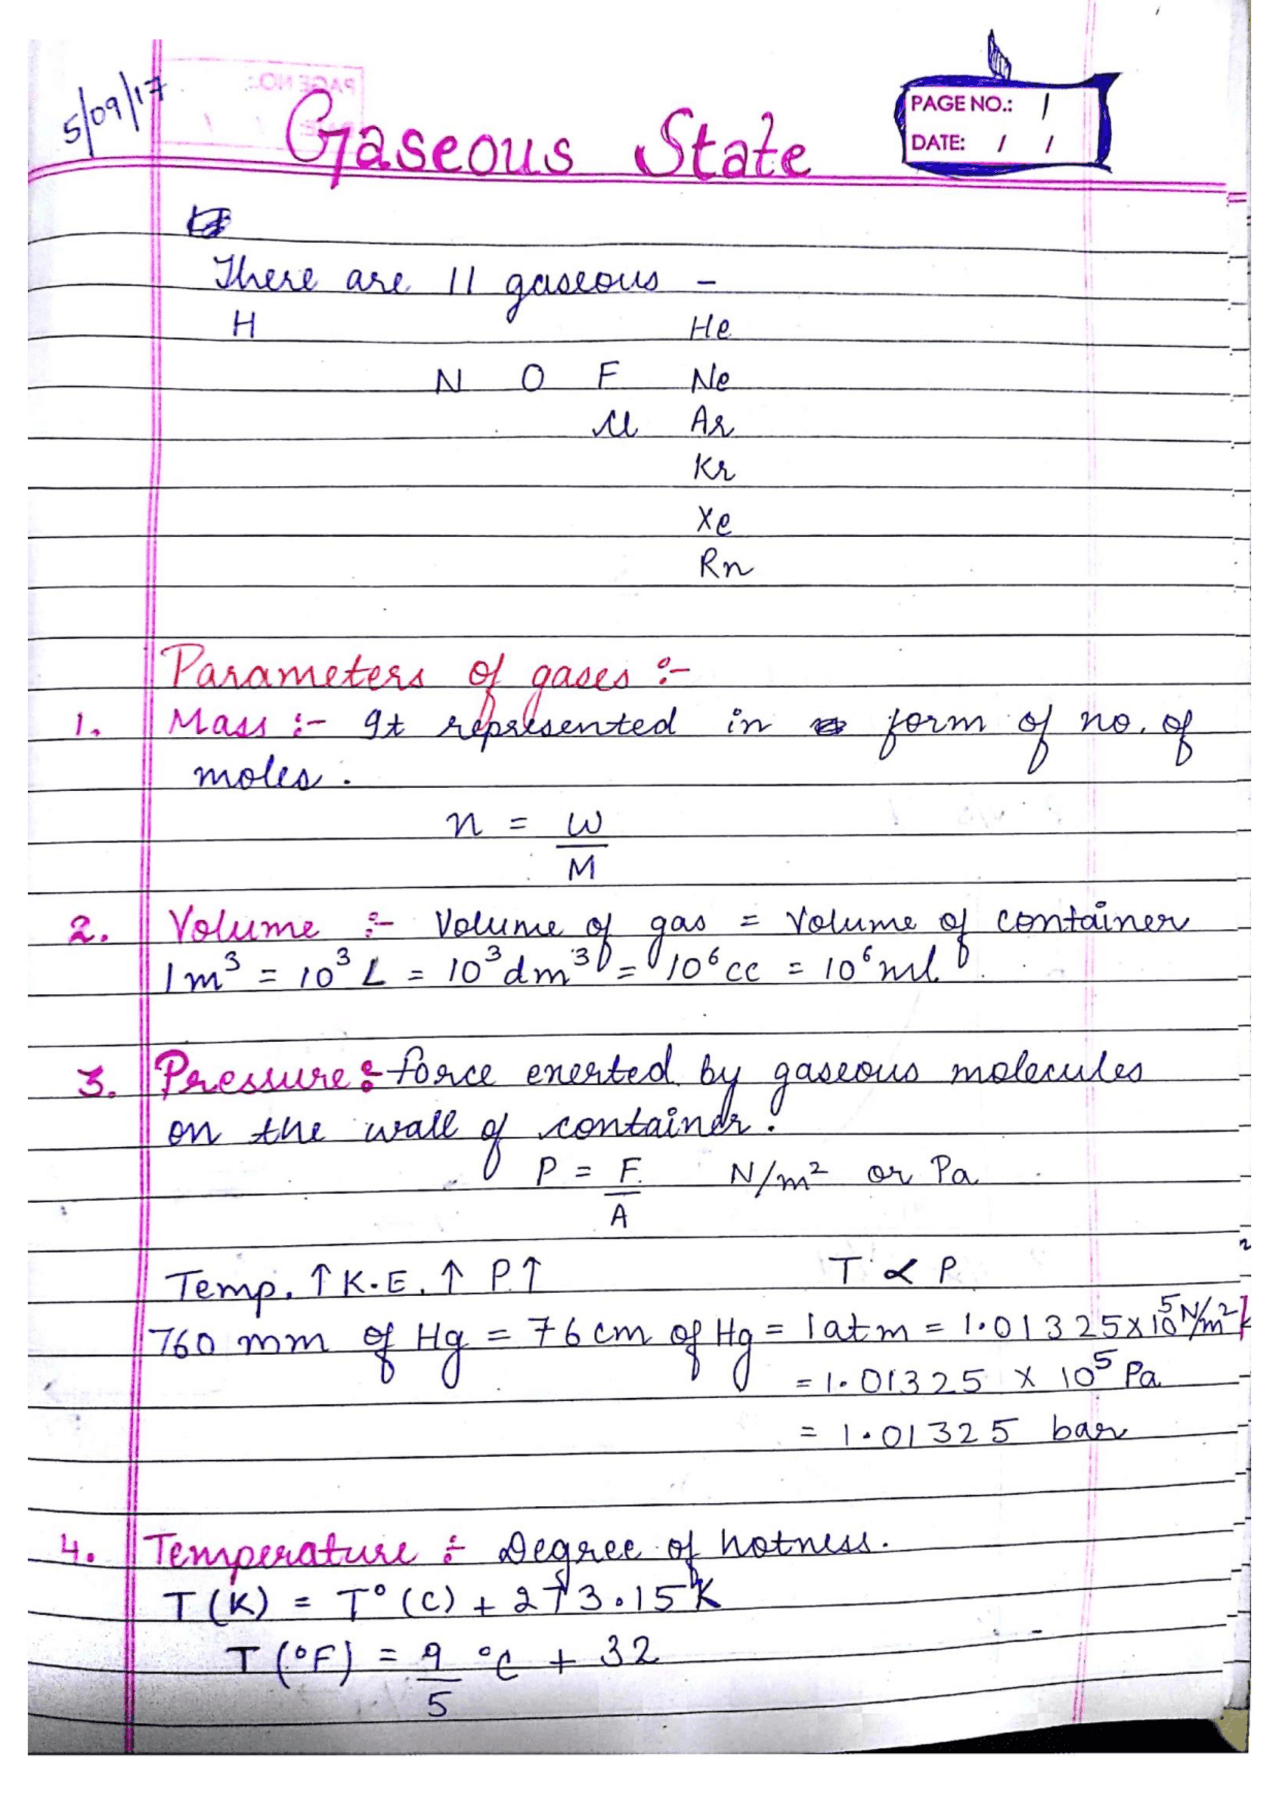 5/09/17
PAGE NO.:
Gaseous State
PAGE NO.: 1
DATE: / /
There are 11 gaseous -
H He
N O F Ne
Cl Ar
Kr
Xe
Rn
Parameters of gases :-
1. Mass :- It represented in form of no. of
moles.
n = W
M
2. Volume :- Volume of gas = Volume of container
1m³ = 10³ L = 10³ dm³ = 10⁶ cc = 10⁶ ml.
3. Pressure : force exerted by gaseous molecules
on the wall of container.
P = F N/m² or Pa
A
Temp. ↑ K.E. ↑ P.↑ T ∝ P
760 mm of Hg = 76 cm of Hg = 1 atm = 1.01325 x 10⁵ N/m²
= 1.01325 x 10⁵ Pa
= 1.01325 bar
4. Temperature :- Degree of hotness.
T (K) = T° (C) + 273.15 K
T (°F) = 9 °C + 32
5